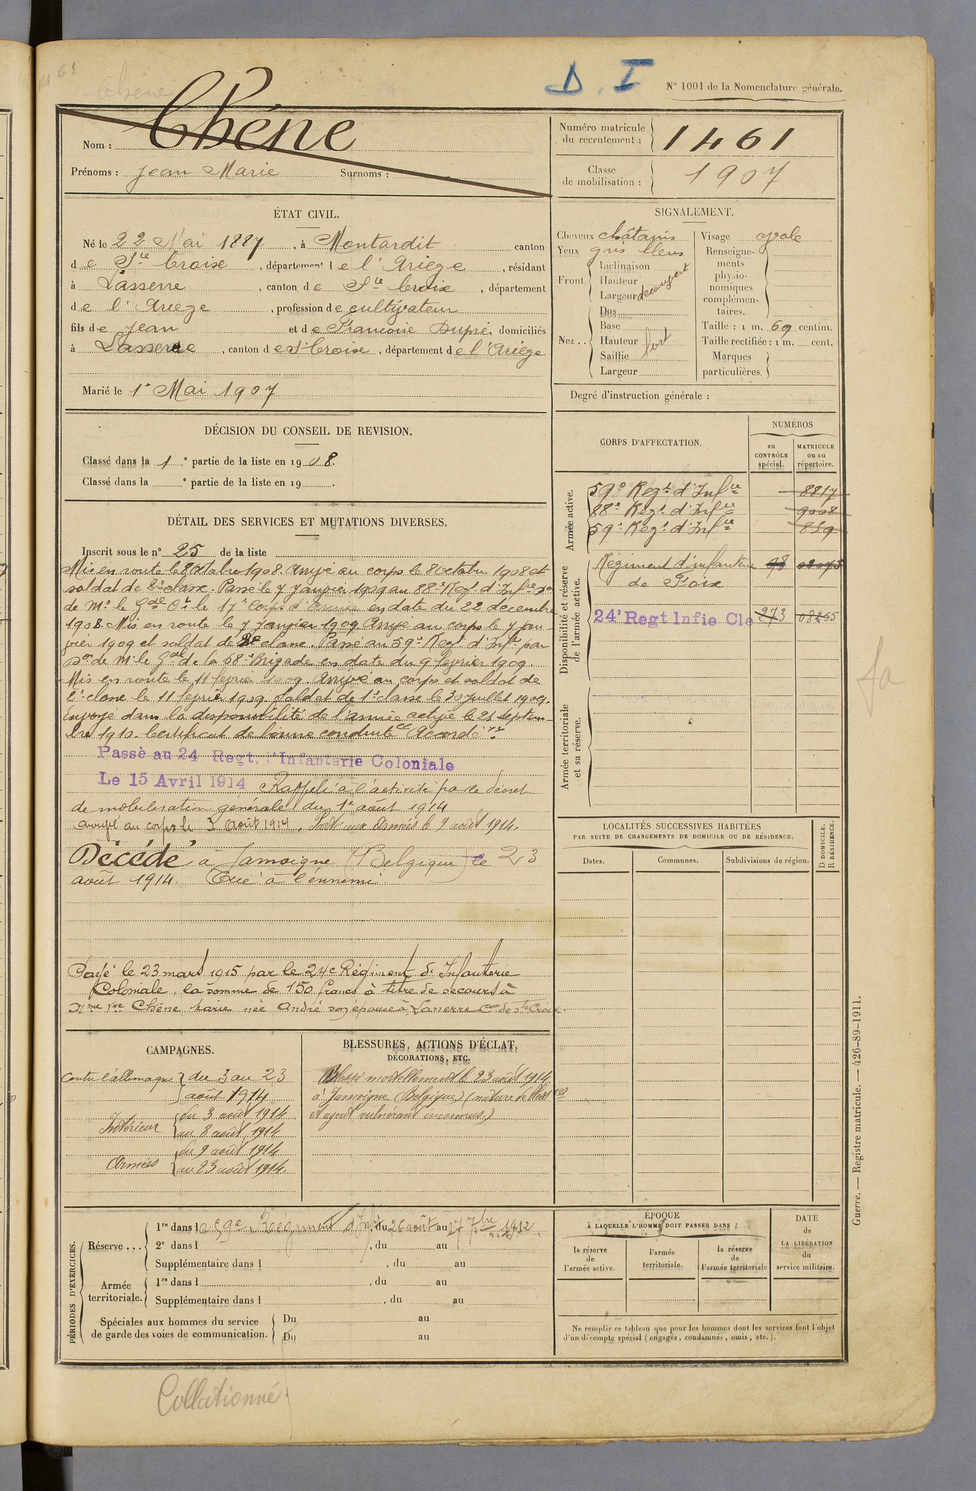 D. I
N° 1001 de la Nomenclature générale.
Nom : Chêne
Prénoms : Jean Marie Surnoms :
Numéro matricule du recrutement : 1461
Classe de mobilisation : 1907
ÉTAT CIVIL.
Né le 22 Mai 1887, à Montardit canton
de Ste Croix, département de l'Ariège, résidant
à Lasserre, canton de Ste Croix, département
de l'Ariège, profession de cultivateur
fils de Jean et de Françoise Dupré, domiciliés
à Lasserre, canton de Ste Croix, département de l'Ariège
Marié le 1er Mai 1907
SIGNALEMENT.
Cheveux châtains
Yeux gris bleus
Front Inclinaison
Hauteur
Largeur découvert
Nez.. Dos
Base
Hauteur fort
Saillie
Largeur
Visage ovale
Renseignements physionomiques complémentaires.
Taille : 1 m. 69 centim.
Taille rectifiée : 1 m. cent.
Marques particulières.
Degré d'instruction générale :
DÉCISION DU CONSEIL DE REVISION.
Classé dans la 1e partie de la liste en 1908.
Classé dans la e partie de la liste en 19 .
CORPS D'AFFECTATION.
NUMÉROS
au CONTRÔLE spécial.
MATRICULE ou au répertoire.
Armée active.
59e Regt d'Infie 8817
88e Regt d'Infie 9008
59e Regt d'Infie 859
Disponibilité et réserve de l'armée active.
Régiment d'infanterie de Foix 98
24e Regt Infie Cle 273 08265
Armée territoriale et sa réserve.
DÉTAIL DES SERVICES ET MUTATIONS DIVERSES.
Inscrit sous le n° 25 de la liste
Mis en route le 8 octobre 1908. Arrivé au corps le 8 octobre 1908 et
soldat de 2e classe. Passé le 7 janvier 1909 au 88e Regt d'Infie
de Mr le Gal Ct le 17e Corps d'Armée en date du 22 décembre
1908. Mis en route le 7 janvier 1909. Arrivé au corps le 7 jan-
vier 1909 et soldat de 2e classe. Passé au 59e Regt d'Infie par
de Mr le Gal de la 68e Brigade en date du 9 février 1909.
Mis en route le 11 février 1909. Arrivé au corps et soldat de
2e classe le 11 février 1909. Soldat de 1e classe le 30 juillet 1909.
Envoyé dans la disponibilité de l'armée active le 25 septem-
bre 1910. Certificat de bonne conduite Accordé.
Passé au 24 Regt. d'Infanterie Coloniale
Le 15 Avril 1914 Rappelé à l'activité par le décret
de mobilisation générale du 1er août 1914
arrivé au corps le 3 Août 1914. Parti aux Armées le 9 août 1914.
Décédé à Jamoigne (Belgique) le 23
août 1914. Tué à l'ennemi.
Payé le 23 mars 1915 par le 24e Régiment d'Infanterie
Coloniale, la somme de 150 francs à titre de secours à
Mme Vve Chêne Marie née André son épouse à Lasserre Con de Ste Croix.
LOCALITÉS SUCCESSIVES HABITÉES
PAR SUITE DE CHANGEMENTS DE DOMICILE OU DE RÉSIDENCE.
Dates. Communes. Subdivisions de région.
D DOMICILE. R RÉSIDENCE.
CAMPAGNES.
Contre l'allemagne du 3 au 23
août 1914
Intérieur du 3 août 1914
au 8 août 1914
Armées du 9 août 1914
au 23 août 1914.
BLESSURES, ACTIONS D'ÉCLAT,
DÉCORATIONS, ETC.
Blessé mortellement le 23 août 1914
à Jamoigne (Belgique) (nature de bless res
et agent vulnérant inconnus.)
PÉRIODES D'EXERCICES.
Réserve... 1re dans le 59e Regiment d'Infie, du 26 août au 17 7bre 1912.
2e dans l , du au
Supplémentaire dans l , du au
Armée territoriale. 1re dans l , du au
Supplémentaire dans l , du au
Spéciales aux hommes du service
de garde des voies de communication. Du au
Du au
ÉPOQUE
À LAQUELLE L'HOMME DOIT PASSER DANS :
la réserve de l'armée active.
l'armée territoriale.
la réserve de l'armée territoriale
DATE de LA LIBÉRATION du service militaire.
Ne remplir ce tableau que pour les hommes dont les services font l'objet
d'un décompte spécial (engagés, condamnés, omis, etc.).
Guerre. — Registre matricule. — 426-89-1911.
Collationné